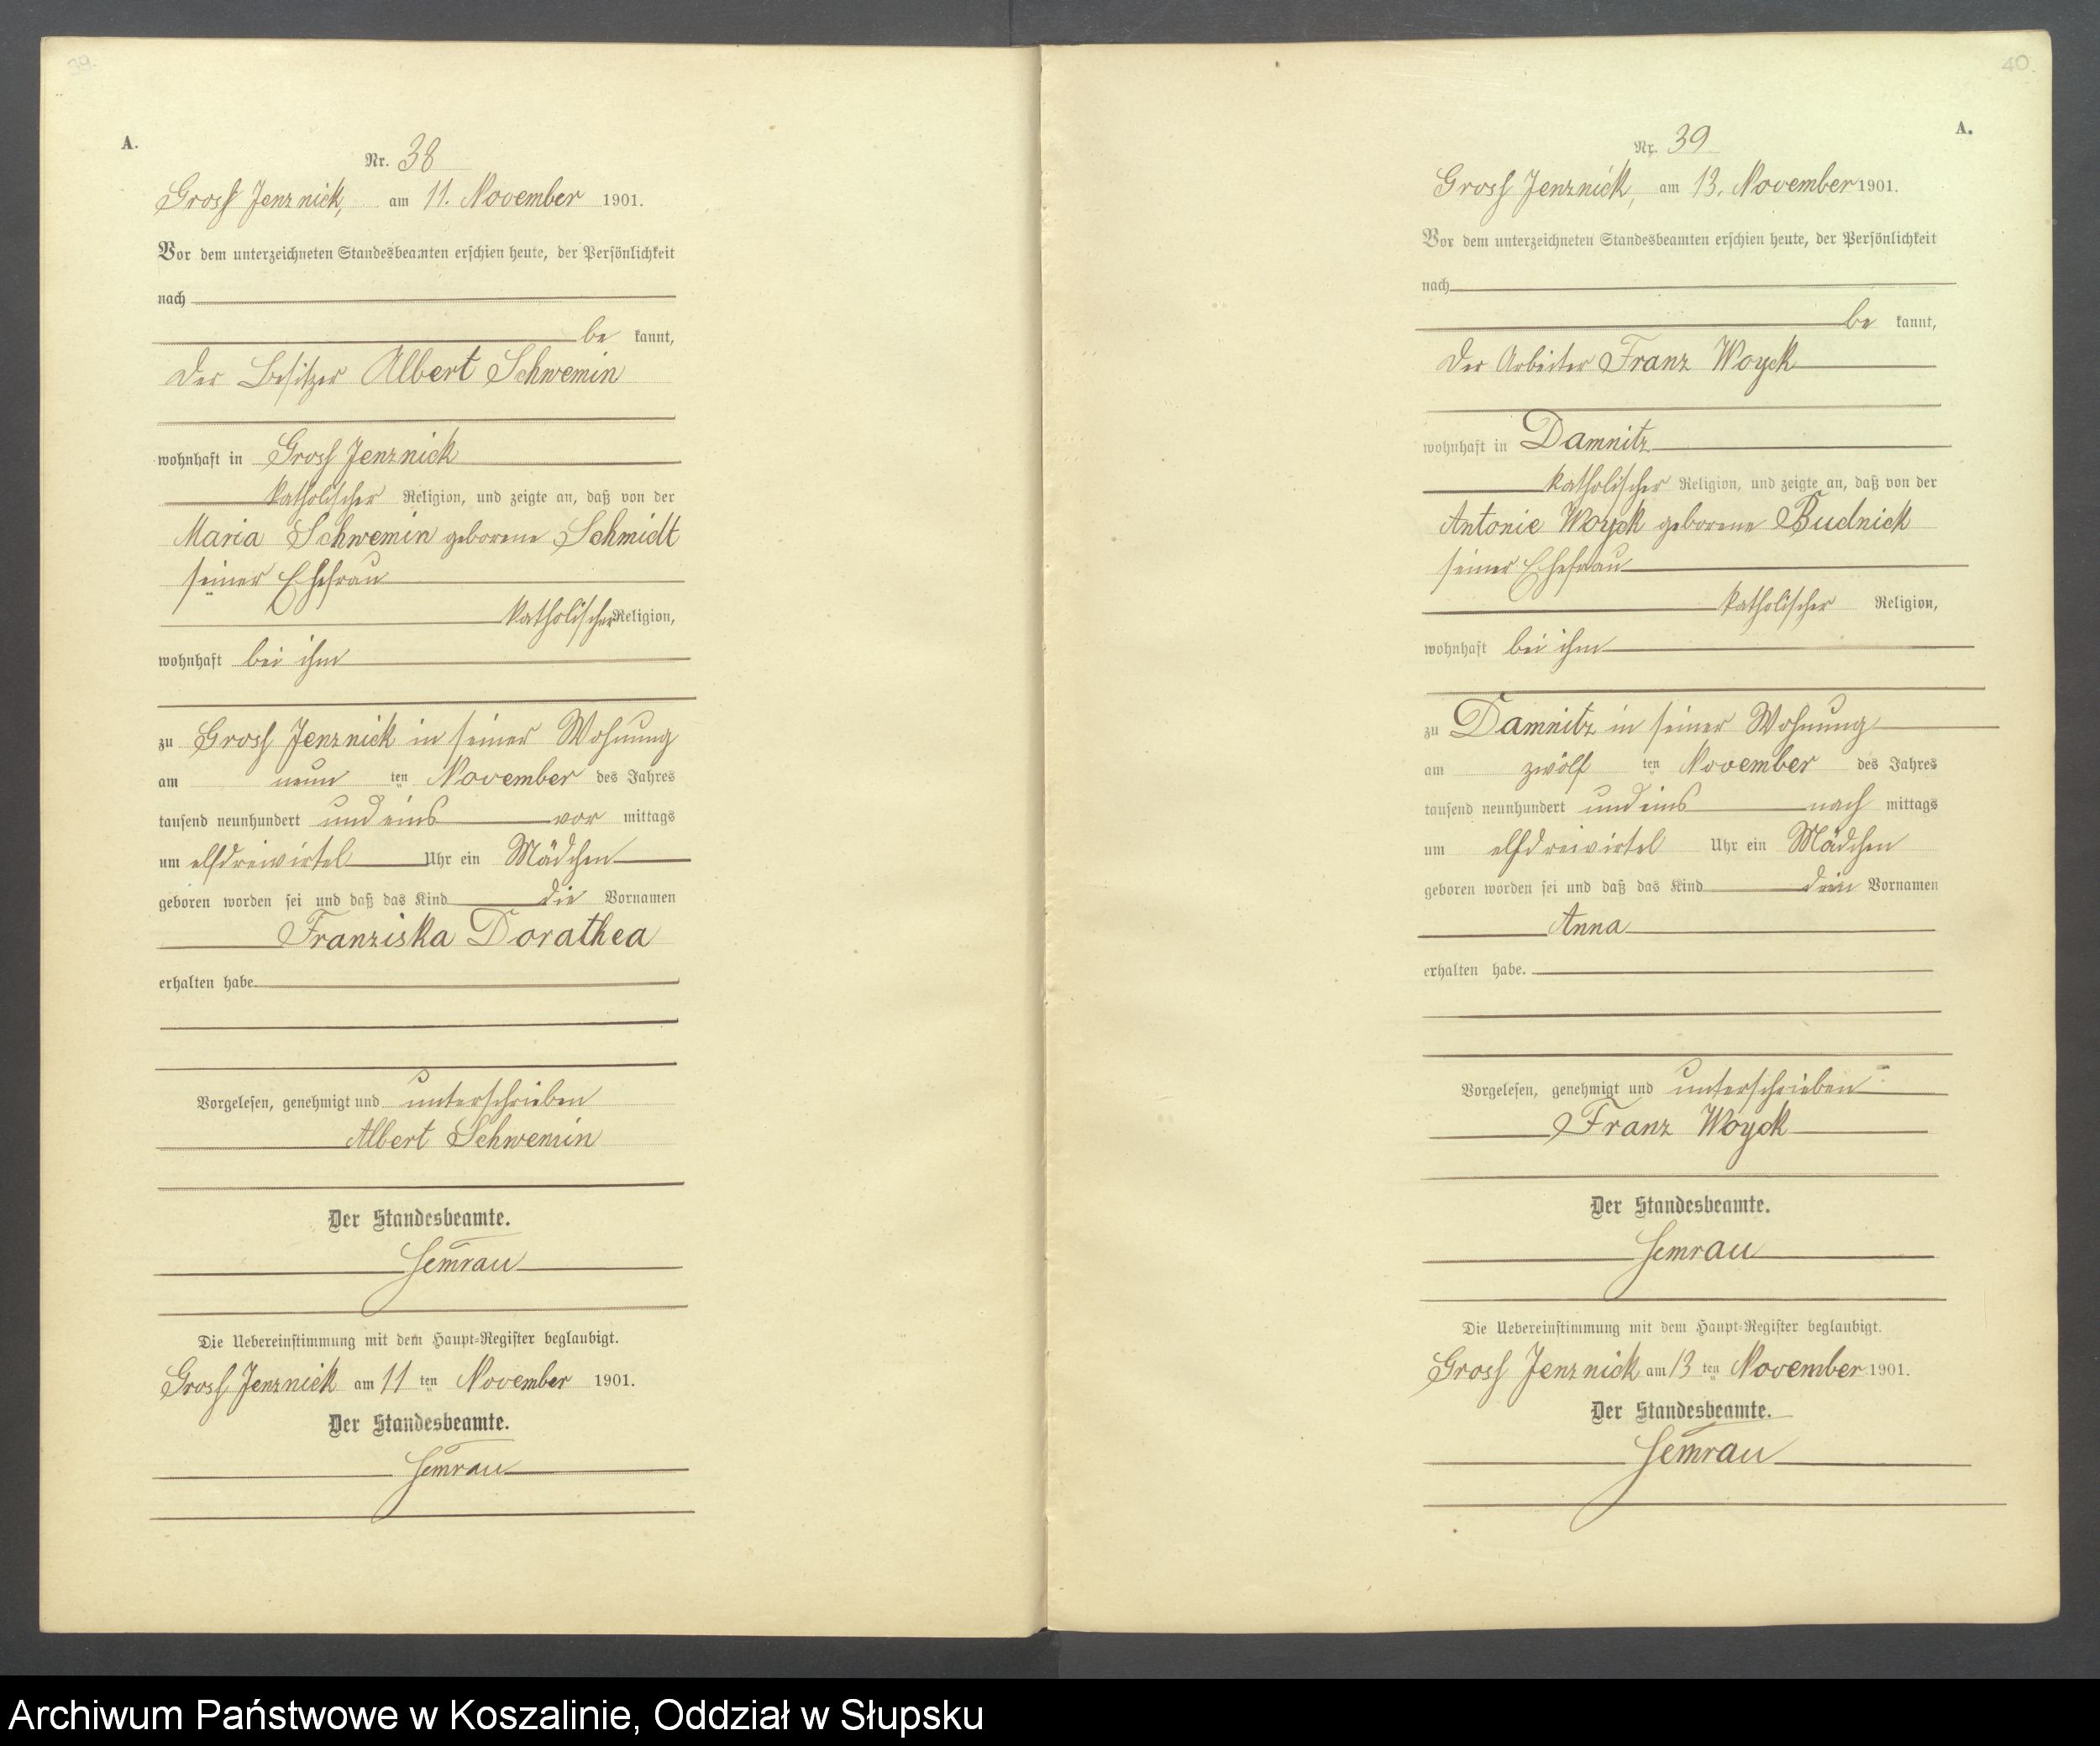 39.
A.
Nr. 38
Gross Jenznick, am 11. November 1901.
Vor dem unterzeichneten Standesbeamten erschien heute, der Persönlichkeit
nach
be kannt,
der Besitzer Albert Schwemin
wohnhaft in Gross Jenznick
katholischer Religion, und zeigte an, daß von der
Maria Schwemin geborene Schmidt
seiner Ehefrau
katholischer Religion,
wohnhaft bei ihm
zu Gross Jenznick in seiner Wohnung
am neun ten November des Jahres
tausend neunhundert und eins vor mittags
um elfdreivirtel Uhr ein Mädchen
geboren worden sei und daß das Kind die Vornamen
Franziska Dorathea
erhalten habe
Vorgelesen, genehmigt und unterschrieben
Albert Schwemin
Der Standesbeamte.
Semrau
Die Uebereinstimmung mit dem Haupt-Register beglaubigt.
Gross Jenznick am 11 ten November 1901.
Der Standesbeamte.
Semrau
40.
A.
Nr. 39
Gross Jenznick, am 13. November 1901.
Vor dem unterzeichneten Standesbeamten erschien heute, der Persönlichkeit
nach
be kannt,
der Arbeiter Franz Woyck
wohnhaft in Damnitz
katholischer Religion, und zeigte an, daß von der
Antonie Woyck geborene Budnick
seiner Ehefrau
katholischer Religion,
wohnhaft bei ihm
zu Damnitz in seiner Wohnung
am zwölf ten November des Jahres
tausend neunhundert und eins nach mittags
um elfdreivirtel Uhr ein Mädchen
geboren worden sei und daß das Kind den Vornamen
Anna
erhalten habe.
Vorgelesen, genehmigt und unterschrieben
Franz Woyck
Der Standesbeamte.
Semrau
Die Uebereinstimmung mit dem Haupt-Register beglaubigt.
Gross Jenznick am 13 ten November 1901.
Der Standesbeamte.
Semrau
Archiwum Państwowe w Koszalinie, Oddział w Słupsku